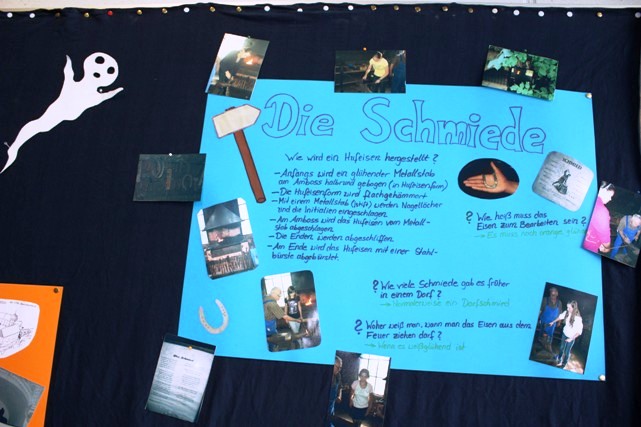 Die Schmiede
Wie wird ein Hufeisen hergestellt?
- Anfangs wird ein glühender Metallstab
am Amboss halbrund gebogen (in Hufeisenform)
- Die Hufeisenform wird flachgehämmert
- Mit einem Metallstab (Stift) werden Nagellöcher
und die Initialien eingeschlagen.
- Am Amboss wird das Hufeisen vom Metall-
stab abgeschlagen.
- Die Enden werden abgeschliffen.
- Am Ende wird das Hufeisen mit einer Stahl-
bürste abgebürstet.
? Wie heiß muss das
Eisen zum Bearbeiten sein?
→ Es muss noch orange
? Wie viele Schmiede gab es früher
in einem Dorf?
→ ein Dorfschmied
? Woher weiß man, wann man das Eisen aus dem
Feuer ziehen darf?
→ Wenn es weißglühend ist